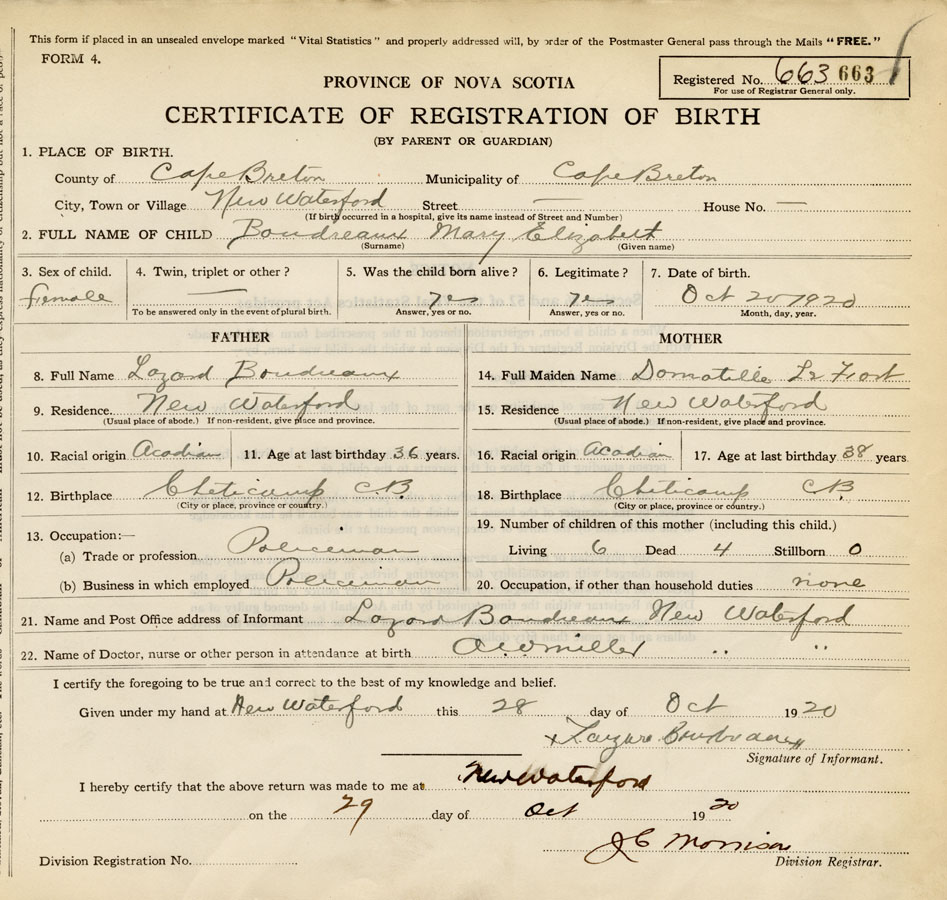 This form if placed in an unsealed envelope marked "Vital Statistics" and properly addressed will, by order of the Postmaster General pass through the Mails "FREE."
FORM 4.
Registered No. 663 663
For use of Registrar General only.
PROVINCE OF NOVA SCOTIA
CERTIFICATE OF REGISTRATION OF BIRTH
(BY PARENT OR GUARDIAN)
1. PLACE OF BIRTH.
County of Cape Breton Municipality of Cape Breton
City, Town or Village New Waterford Street — House No. —
(If birth occurred in a hospital, give its name instead of Street and Number)
2. FULL NAME OF CHILD Boudreaux Mary Elizabeth
(Surname) (Given name)
3. Sex of child. 4. Twin, triplet or other? 5. Was the child born alive? 6. Legitimate? 7. Date of birth.
female — yes yes Oct 20 1920
To be answered only in the event of plural birth. Answer, yes or no. Answer, yes or no. Month, day, year.
FATHER
8. Full Name Lazard Boudreaux
9. Residence. New Waterford
(Usual place of abode.) If non-resident, give place and province.
10. Racial origin Acadian 11. Age at last birthday 36 years.
12. Birthplace Cheticamp C.B.
(City or place, province or country.)
13. Occupation:—
(a) Trade or profession Policeman
(b) Business in which employed Policeman
MOTHER
14. Full Maiden Name Domatille Le Fort
15. Residence New Waterford
(Usual place of abode.) If non-resident, give place and province.
16. Racial origin Acadian 17. Age at last birthday 38 years
18. Birthplace Cheticamp C.B
(City or place, province or country.)
19. Number of children of this mother (including this child.)
Living 6 Dead 4 Stillborn 0
20. Occupation, if other than household duties none
21. Name and Post Office address of Informant Lazard Boudreaux New Waterford
22. Name of Doctor, nurse or other person in attendance at birth. Miller " "
I certify the foregoing to be true and correct to the best of my knowledge and belief.
Given under my hand at New Waterford this 28 day of Oct 1920
x Lazare Boudreaux
Signature of Informant.
I hereby certify that the above return was made to me at New Waterford
on the 29 day of Oct 1920
J C Morrison
Division Registration No. Division Registrar.